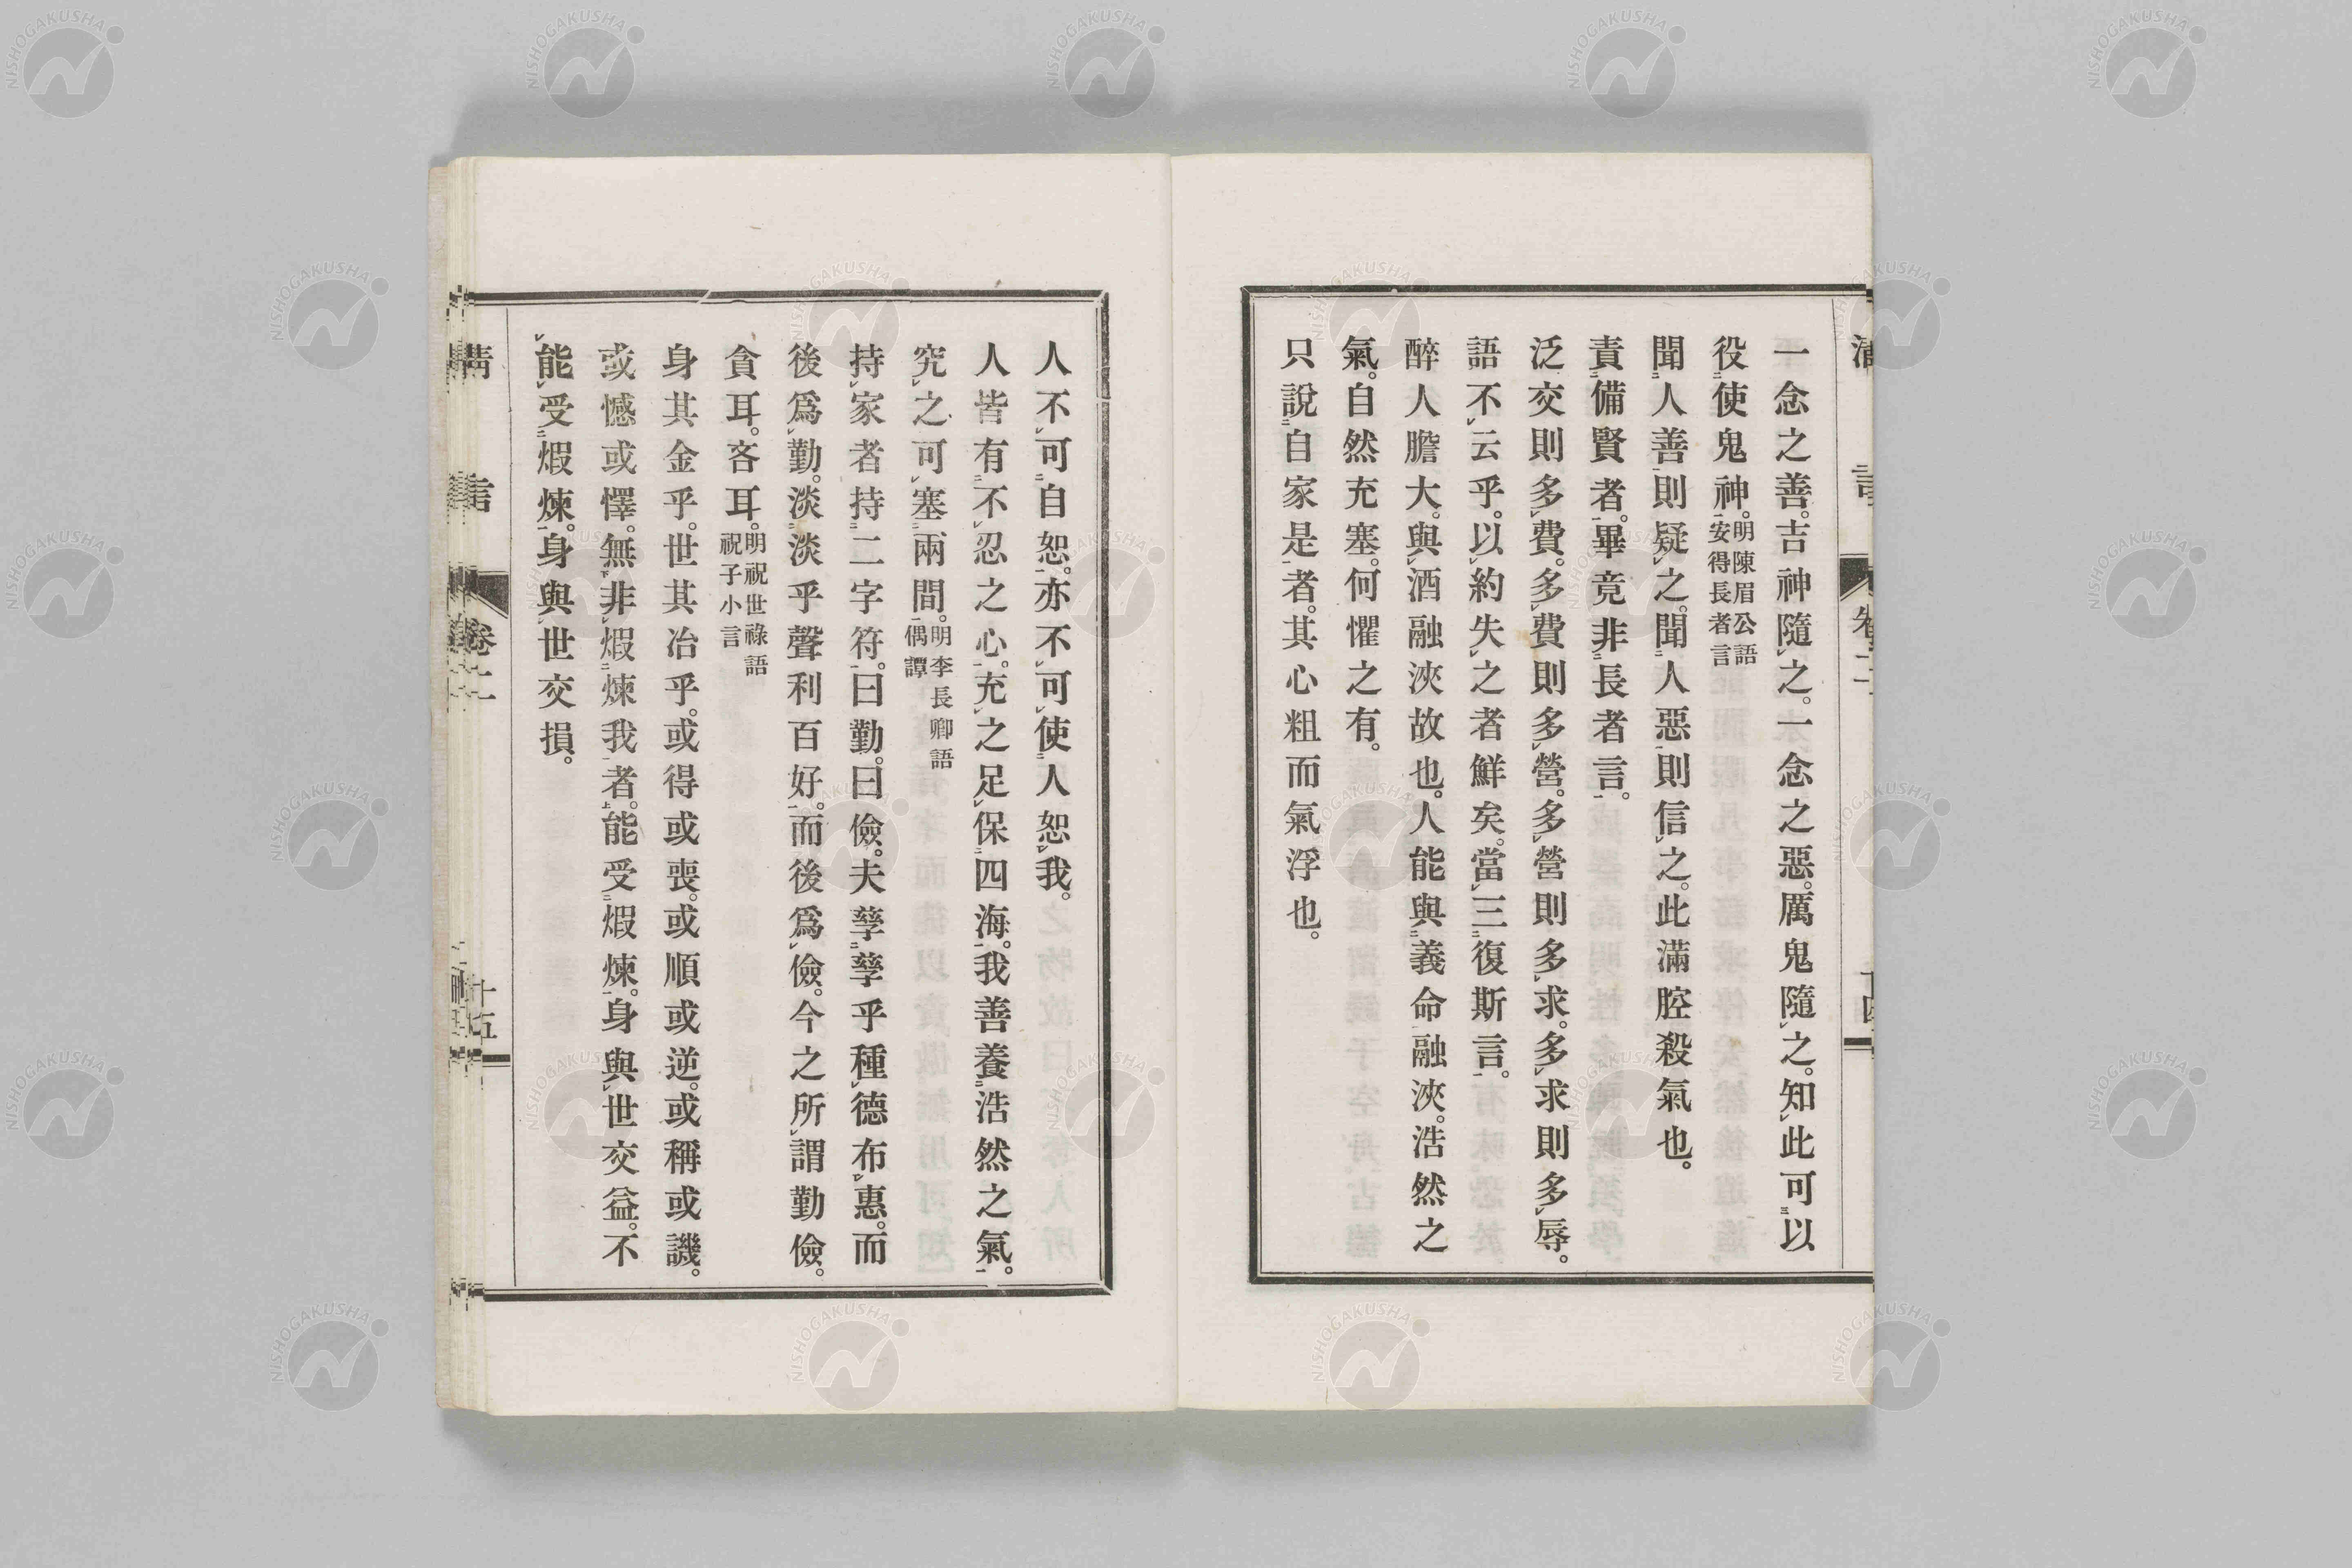 一念之善。吉神隨之。一念之惡。厲鬼隨之。知此可以
役使鬼神。明陳眉公語
安得長者言
聞人善則疑之。聞人惡則信之。此滿腔殺氣也。
責備賢者。畢竟非長者言。
泛交則多費。多費則多營。多營則多求。多求則多辱。
語不云乎。以約失之者鮮矣。當三復斯言。
醉人膽大。與酒融浹故也。人能與義命融浹。浩然之
氣。自然充塞。何懼之有。
只說自家是者。其心粗而氣浮也。
人不可自恕。亦不可使人恕我。
人皆有不忍之心。充之足保四海。我善養浩然之氣。
究之可塞兩間。明李長卿語
偶譚
持家者持二字符。曰勤。曰儉。夫孳孳乎種德布惠。而
後爲勤。淡淡乎聲利百好。而後爲儉。今之所謂勤儉。
貪耳。吝耳。明祝世祿語
祝子小言
身其金乎。世其冶乎。或得或喪。或順或逆。或稱或譏。
或憾或懌。無非煆煉我者。能受煆煉。身與世交益。不
能受煆煉。身與世交損。
卷二
十五